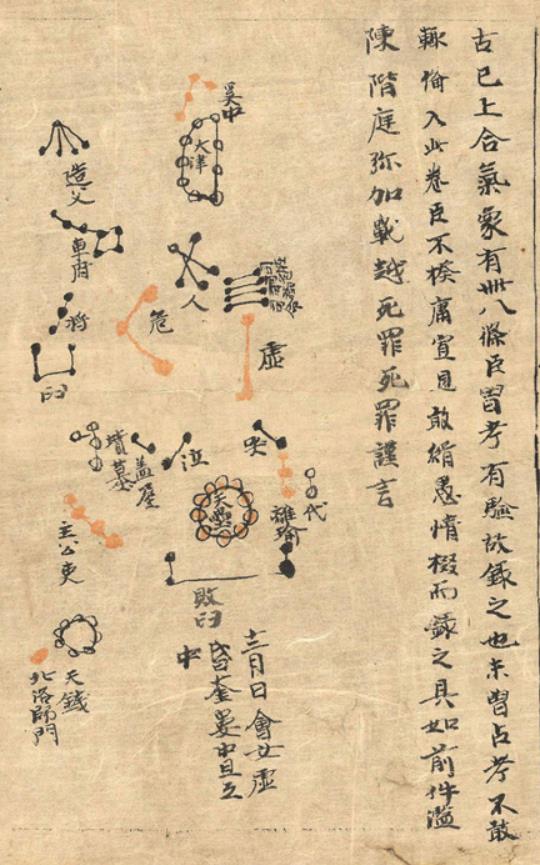 古已上合氣象有卌八條臣曽考有驗故錄之也未曽占考不敢
輒俻入此卷臣不揆庸冝見敢緝愚情掇而錄之具如前件濫
陳階庭弥加戰越死罪死罪謹言
大津
虛
人
危
造父
車府
臼
哭
泣
代
天壘
敗臼
蓋屋
墳墓
天錢
北洛師門
十二月日會女虛
昏奎婁中旦亙
中